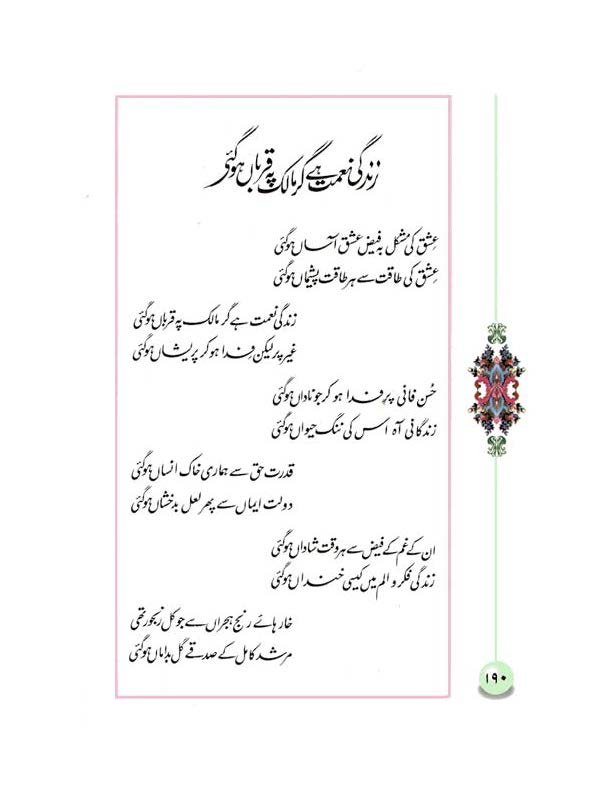 زندگی نعمت ہے گر مالک پہ قرباں ہوگئی
عِشق کی مشکل بہ فیضِ عشق آساں ہوگئی
عِشق کی طاقت سے ہر طاقت پشیماں ہوگئی
زندگی نعمت ہے گر مالک پہ قرباں ہوگئی
غیر پر لیکن فِدا ہوکر پریشاں ہوگئی
حُسنِ فانی پر فِدا ہو کر جو ناداں ہوگئی
زندگانی آہ اس کی ننگِ حیواں ہوگئی
قدرتِ حق سے ہماری خاک انساں ہوگئی
دولتِ ایماں سے پھر لعلِ بدخشاں ہوگئی
ان کے غم کے فیض سے ہر وقت شاداں ہوگئی
زندگی فکر و الم میں کیسی خنداں ہوگئی
خار ہائے رنجِ ہجراں سے جو کل رنجور تھی
مرشدِ کامل کے صدقے گل بداماں ہوگئی
۱۹۰